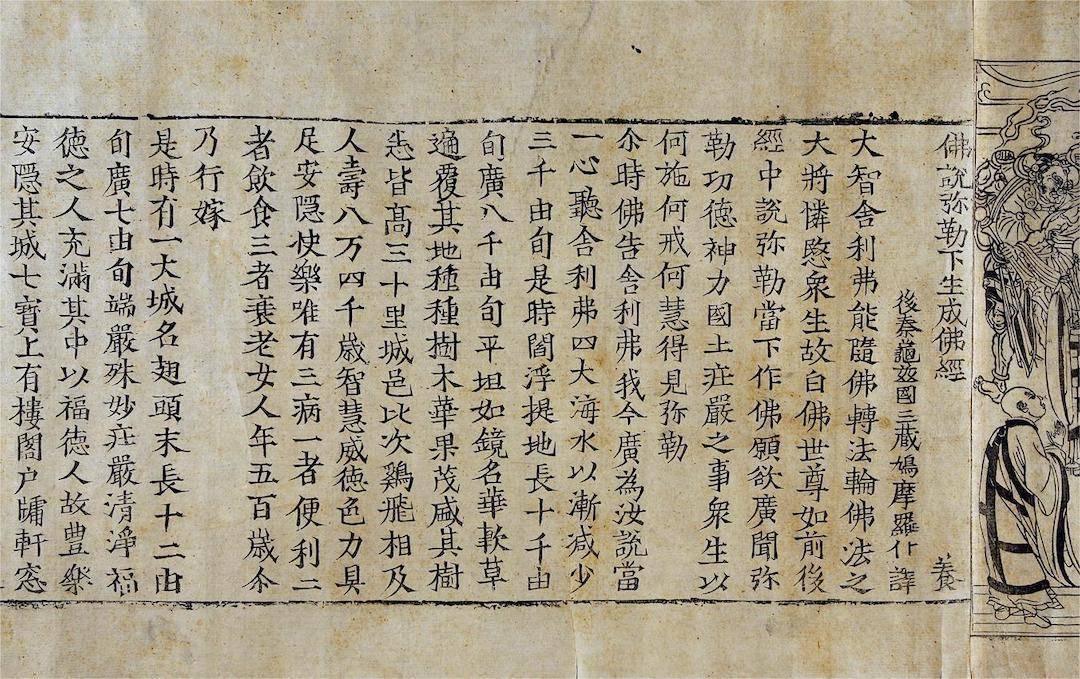 佛說弥勒下生成佛經 養
後秦龜茲國三藏鳩摩羅什譯
大智舎利弗能隨佛轉法輪佛法之
大將憐愍衆生故白佛世尊如前後
經中說弥勒當下作佛願欲廣聞弥
勒功德神力國土庄嚴之事衆生以
何施何戒何慧得見弥勒
尒時佛告舎利弗我今廣為汝說當
一心聽舎利弗四大海水以漸减少
三千由旬是時閻浮提地長十千由
旬廣八千由旬平坦如鏡名華軟草
遍覆其地種種樹木華果茂盛其樹
悉皆髙三十里城邑比次鷄飛相及
人壽八万四千歲智慧威德色力具
足安隱快樂唯有三病一者便利二
者飲食三者衰老女人年五百歲尒
乃行嫁
是時有一大城名翅頭末長十二由
旬廣七由旬端嚴殊妙庄嚴清淨福
德之人充滿其中以福德人故豊樂
安隱其城七寶上有樓閣户牖軒窓